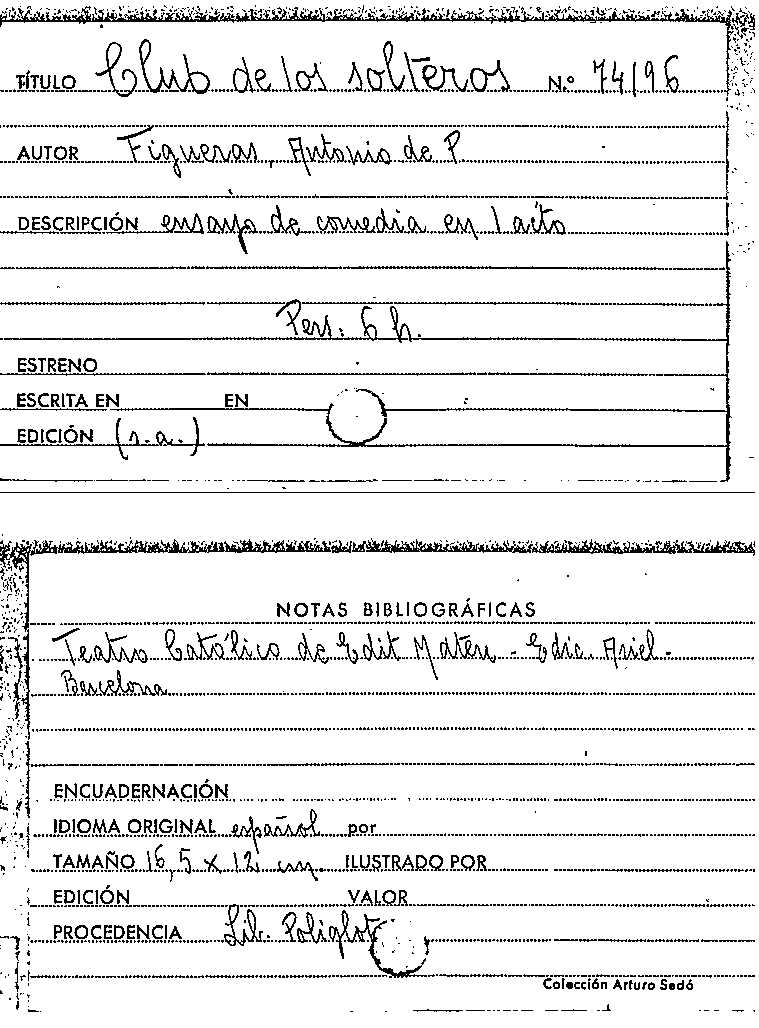 TÍTULO Club de los solteros N.º 74196
AUTOR Figueras, Antonio de P.
DESCRIPCIÓN ensayo de comedia en 1 acto
Pers. 6 h.
ESTRENO
ESCRITA EN EN
EDICIÓN (s.a.)
NOTAS BIBLIOGRÁFICAS
Teatro Católico de Edit Mater - Edic. Ariel -
Barcelona
ENCUADERNACIÓN
IDIOMA ORIGINAL español por
TAMAÑO 16,5 x 12 cm. ILUSTRADO POR
EDICIÓN VALOR
PROCEDENCIA Lib. Poliglot
Colección Arturo Sedó